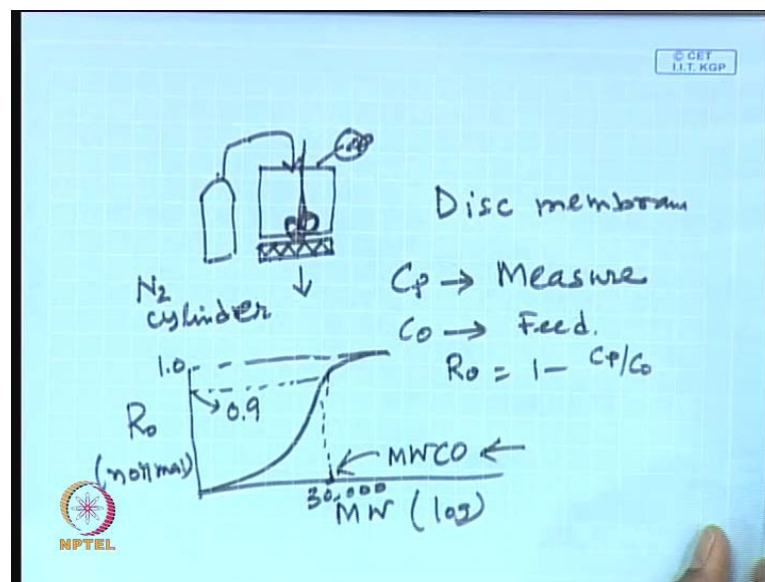 © CET
I.I.T. KGP
Disc membram
N2
cylinder
Cp → Measure
Co → Feed.
Ro = 1 - Cp/Co
1.0
0.9
Ro
(normal)
MWCO ←
30,000
MW (log)
NPTEL